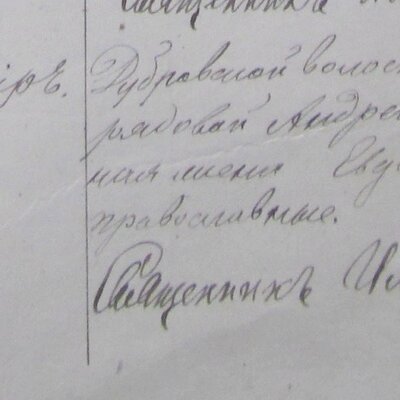 Священникъ
Дубровской волос
рядовой Андре
ная жена Евд
православные.
Священникъ Ил